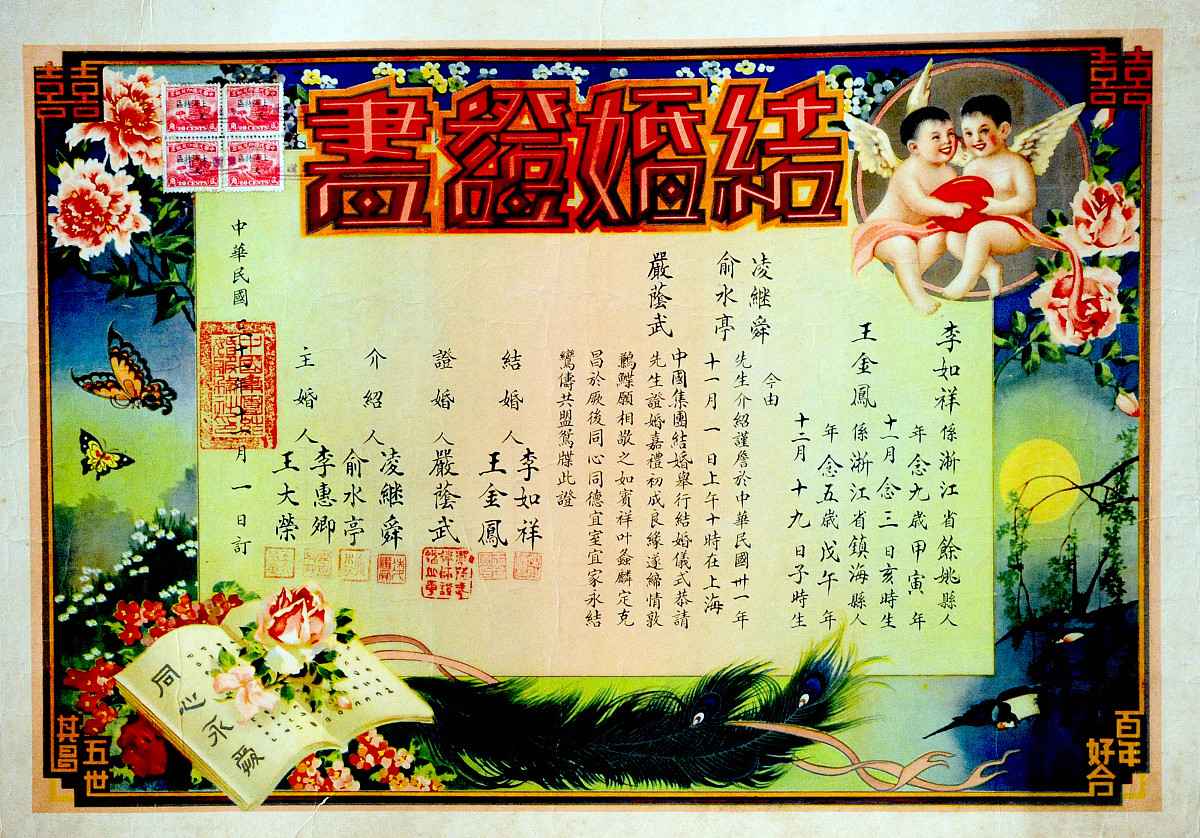 結婚證書
囍
囍
李如祥係浙江省餘姚縣人
年念九歲甲寅年
十一月念三日亥時生
王金鳳係浙江省鎮海縣人
年念五歲戊午年
十二月十九日子時生
今由
凌繼舜
俞水亭
先生介紹謹詹於中華民國卅一年
十一月一日上午十時在上海
中國集團結婚舉行結婚儀式恭請
嚴蔭武
先生證婚嘉禮初成良緣遂締情敦
鶼鰈願相敬之如賓祥叶螽麟定克
昌於厥後同心同德宜室宜家永結
鸞儔共盟鴛牒此證
結婚人
李如祥
王金鳳
證婚人
嚴蔭武
介紹人
凌繼舜
俞水亭
主婚人
李惠卿
王大榮
中華民國 十一月一日訂
20 CENTS
20 CENTS
20 CENTS
20 CENTS
同心永愛
百年好合
五世其昌